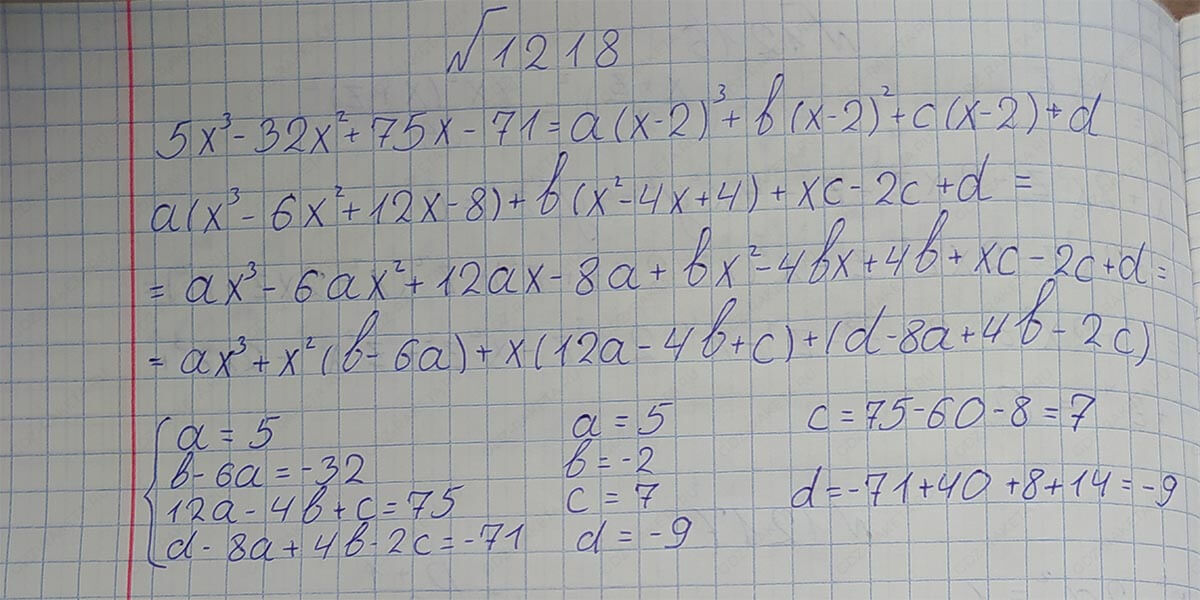 √1218
5x³ - 32x² + 75x - 71 = a(x-2)³ + b(x-2)² + c(x-2) + d
a(x³ - 6x² + 12x - 8) + b(x² - 4x + 4) + xc - 2c + d =
= ax³ - 6ax² + 12ax - 8a + bx² - 4bx + 4b + xc - 2c + d =
= ax³ + x²(b - 6a) + x(12a - 4b + c) + (d - 8a + 4b - 2c)
{ a = 5
b - 6a = -32
12a - 4b + c = 75
d - 8a + 4b - 2c = -71
a = 5
b = -2
c = 7
d = -9
c = 75 - 60 - 8 = 7
d = -71 + 40 + 8 + 14 = -9